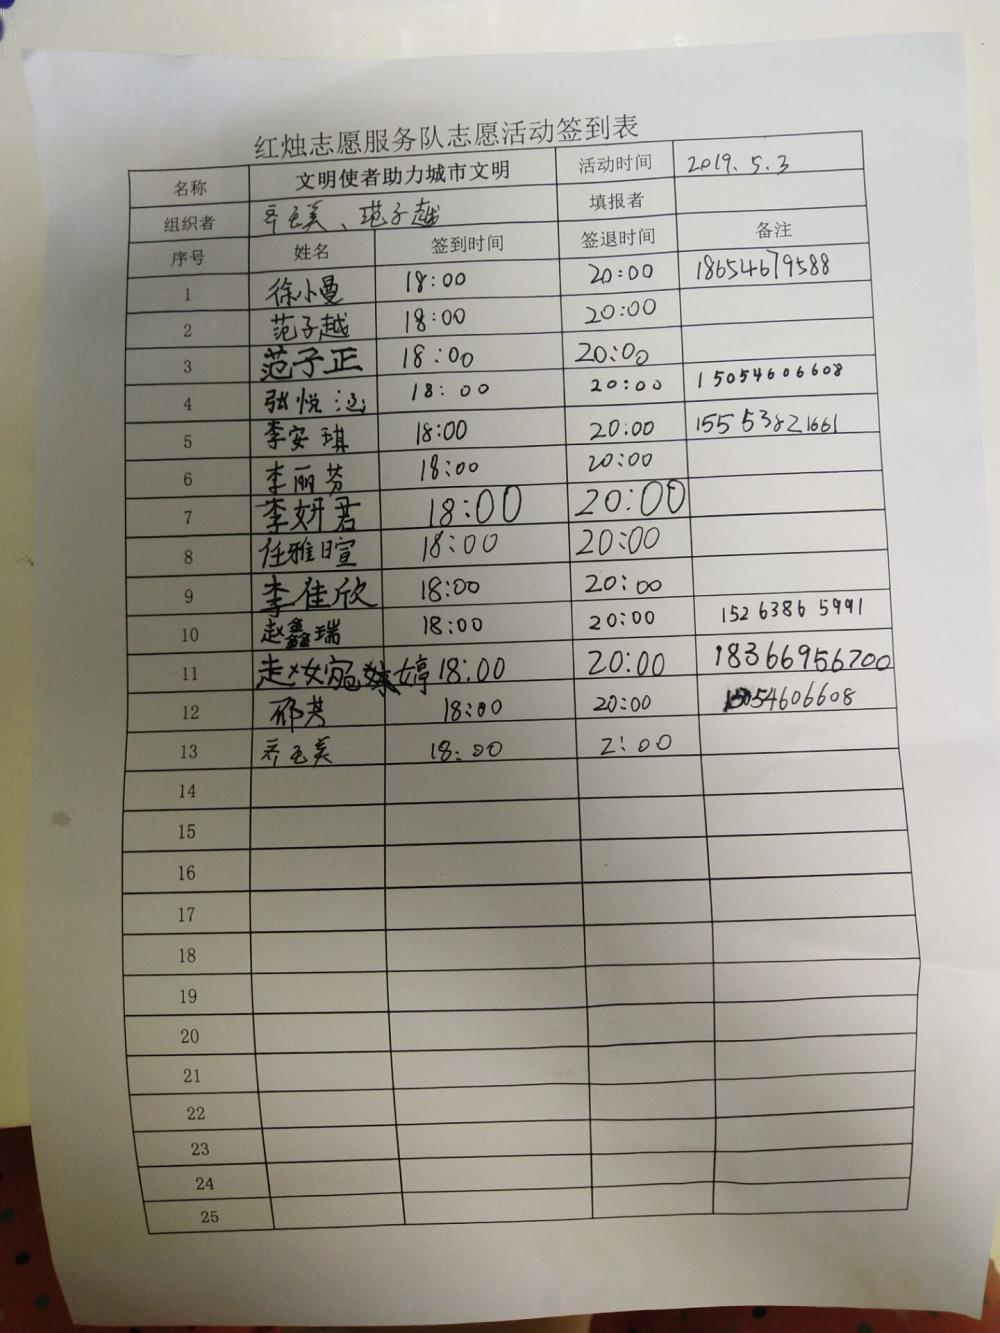 红烛志愿服务队志愿活动签到表
名称 文明使者助力城市文明 活动时间 2019.5.3
组织者 齐玉美、范子越 填报者
序号 姓名 签到时间 签退时间 备注
1 徐小曼 18:00 20:00 18654679588
2 范子越 18:00 20:00
3 范子正 18:00 20:00
4 张悦 18:00 20:00 15054606608
5 李安琪 18:00 20:00 15553821661
6 李丽芬 18:00 20:00
7 李妍君 18:00 20:00
8 任雅暄 18:00 20:00
9 李佳欣 18:00 20:00
10 赵鑫瑞 18:00 20:00 15263865991
11 18:00 20:00 18366956700
12 邢芳 18:00 20:00 15054606608
13 齐玉美 18:00 2:00
14
15
16
17
18
19
20
21
22
23
24
25